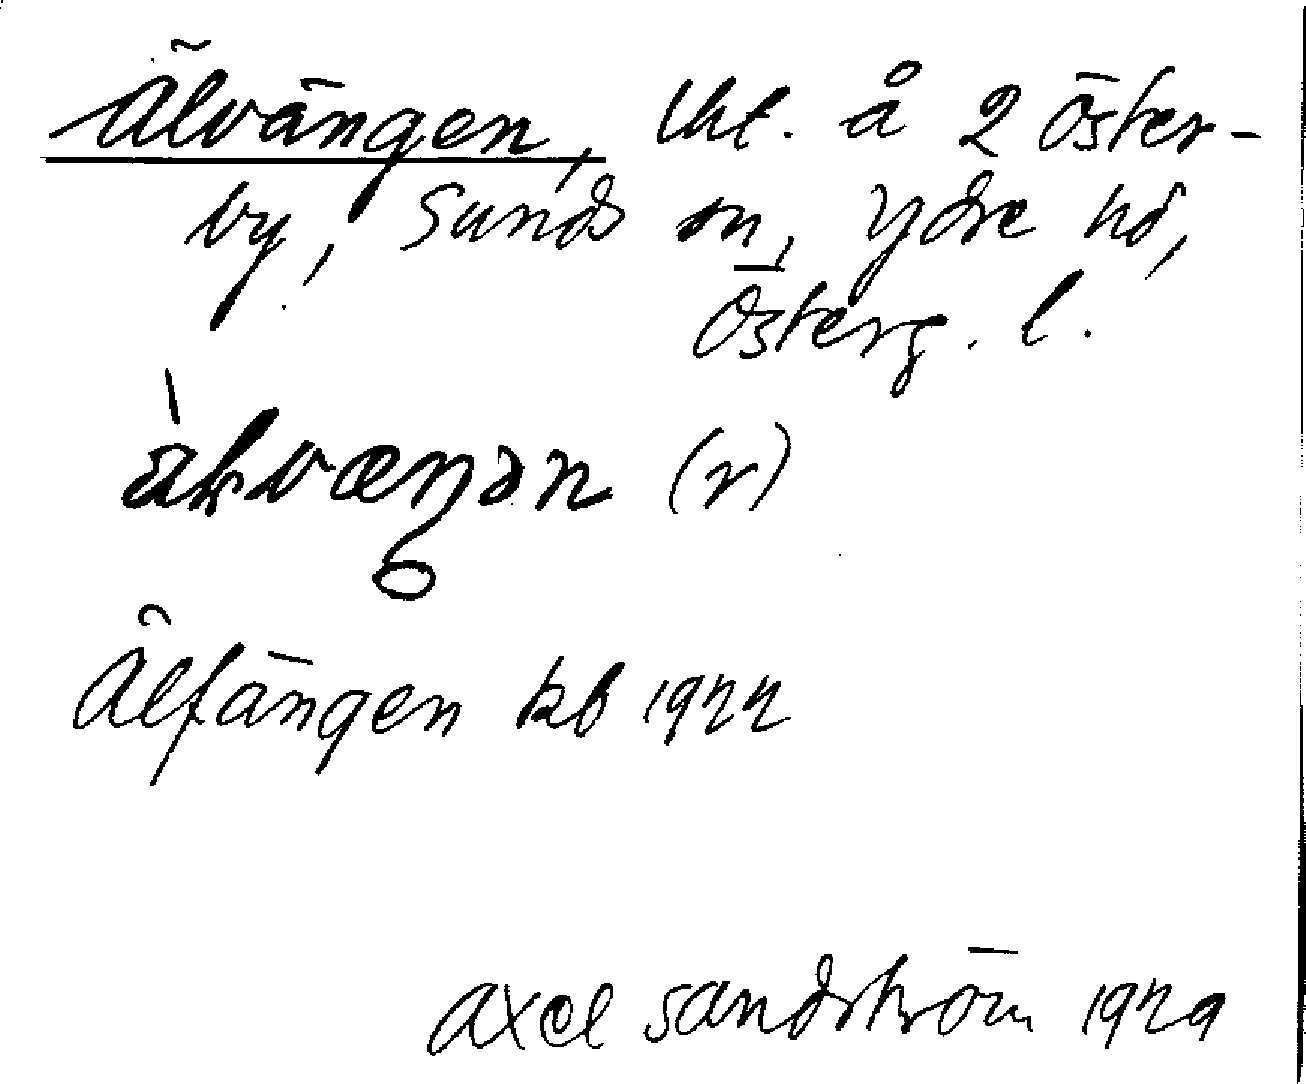 Älvängen, lht. å 2 Öster-
by, Sunds sn, Ydre hd,
Österg. l.
(r)
Älfängen kb 1922
Axel Sandström 1929